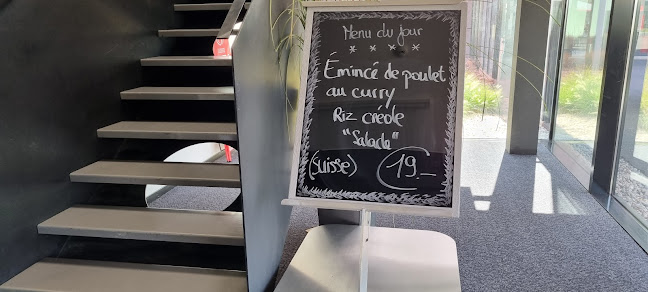 Menu du Jour
* * * * *
Émincé de poulet
au curry
Riz créole
"Salade"
(Suisse) 19.-